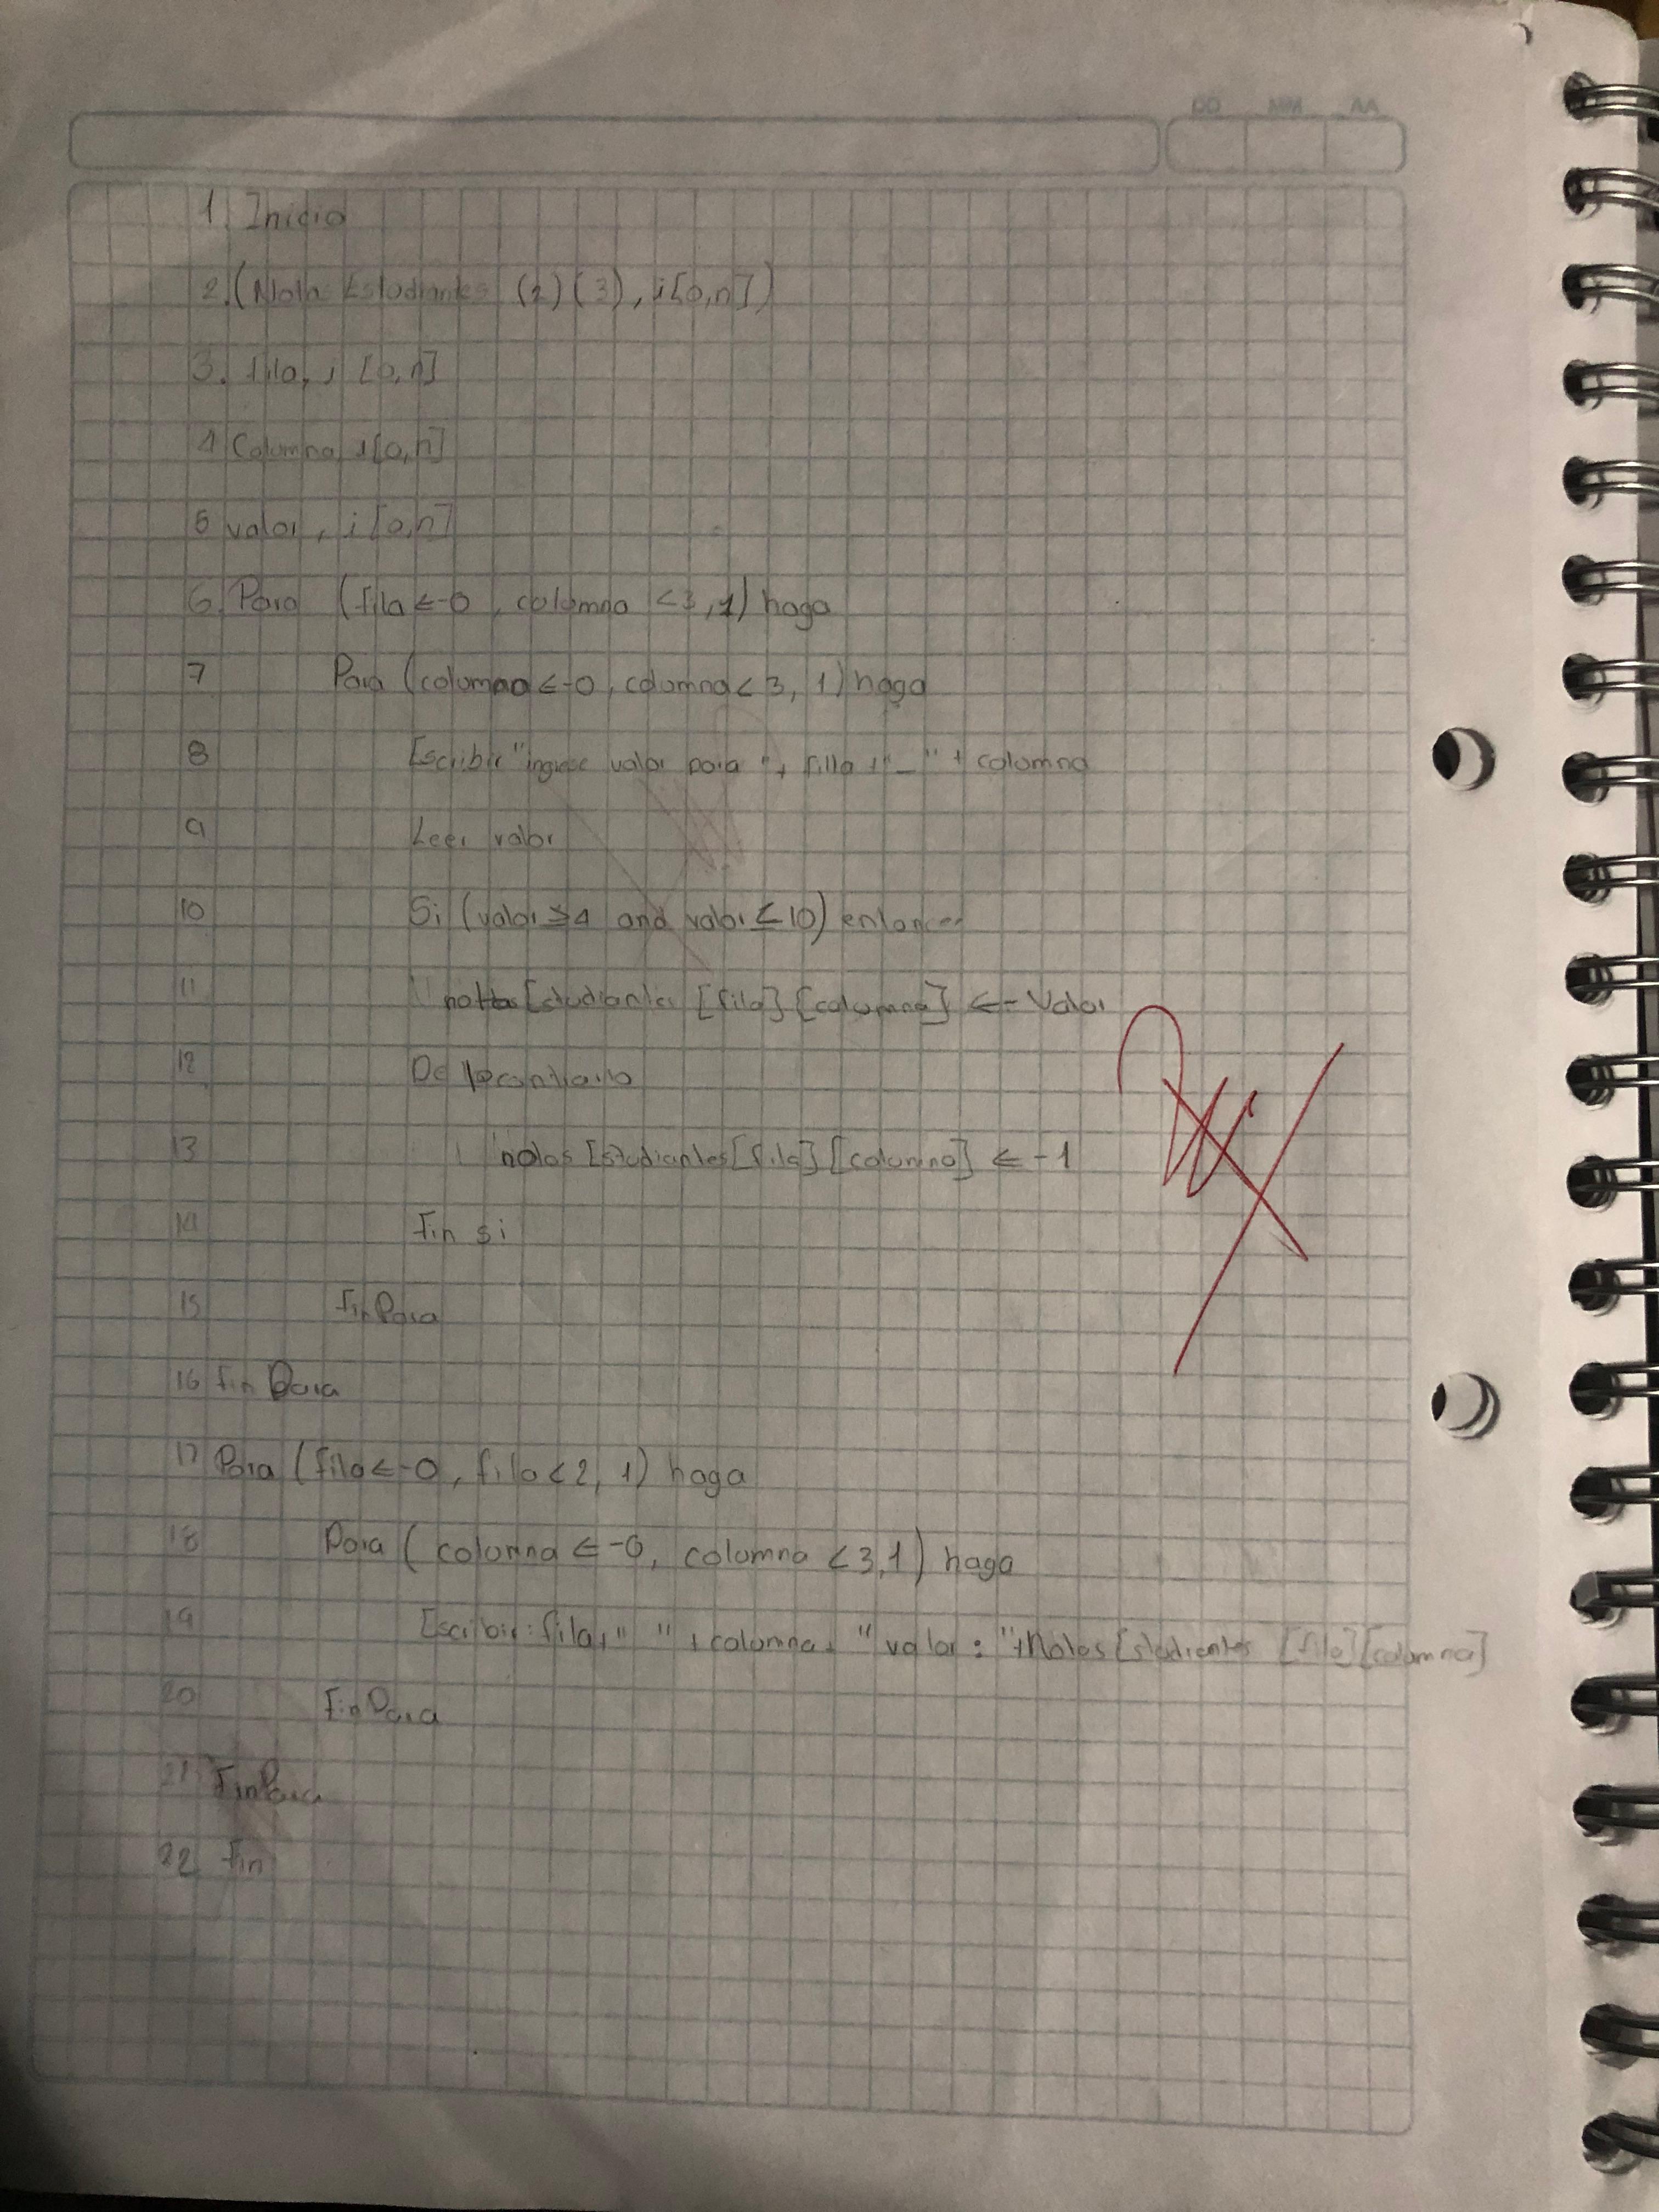 AA MM DD
1. Inicio
2. (Notas Estudiantes (2)(3), i[0,n])
3. fila, i [0,n]
4 Columna i[0,n]
5 valor, i [0,n]
6. Para (fila <-0, columna <3,1) haga
7 Para (columna <-0, columna < 3, 1) haga
8 Escribir "ingrese valor para "+ filla +"_" + columna
9 Leer valor
10 Si (valor ≥ 4 and valor ≤ 10) entonces
11 notas Estudiantes [fila] [columna] <- Valor
12 De lo contrario
13 notas Estudiantes [fila] [columna] <- -1
14 Fin si
15 FinPara
16 Fin Para
17 Para (fila <-0, fila <2, 1) haga
18 Para (columna <-0, columna <3,1) haga
19 Escribir: fila+" "+columna+ "valor: "+Notas Estudiantes [fila][columna]
20 FinPara
21 FinPara
22 fin